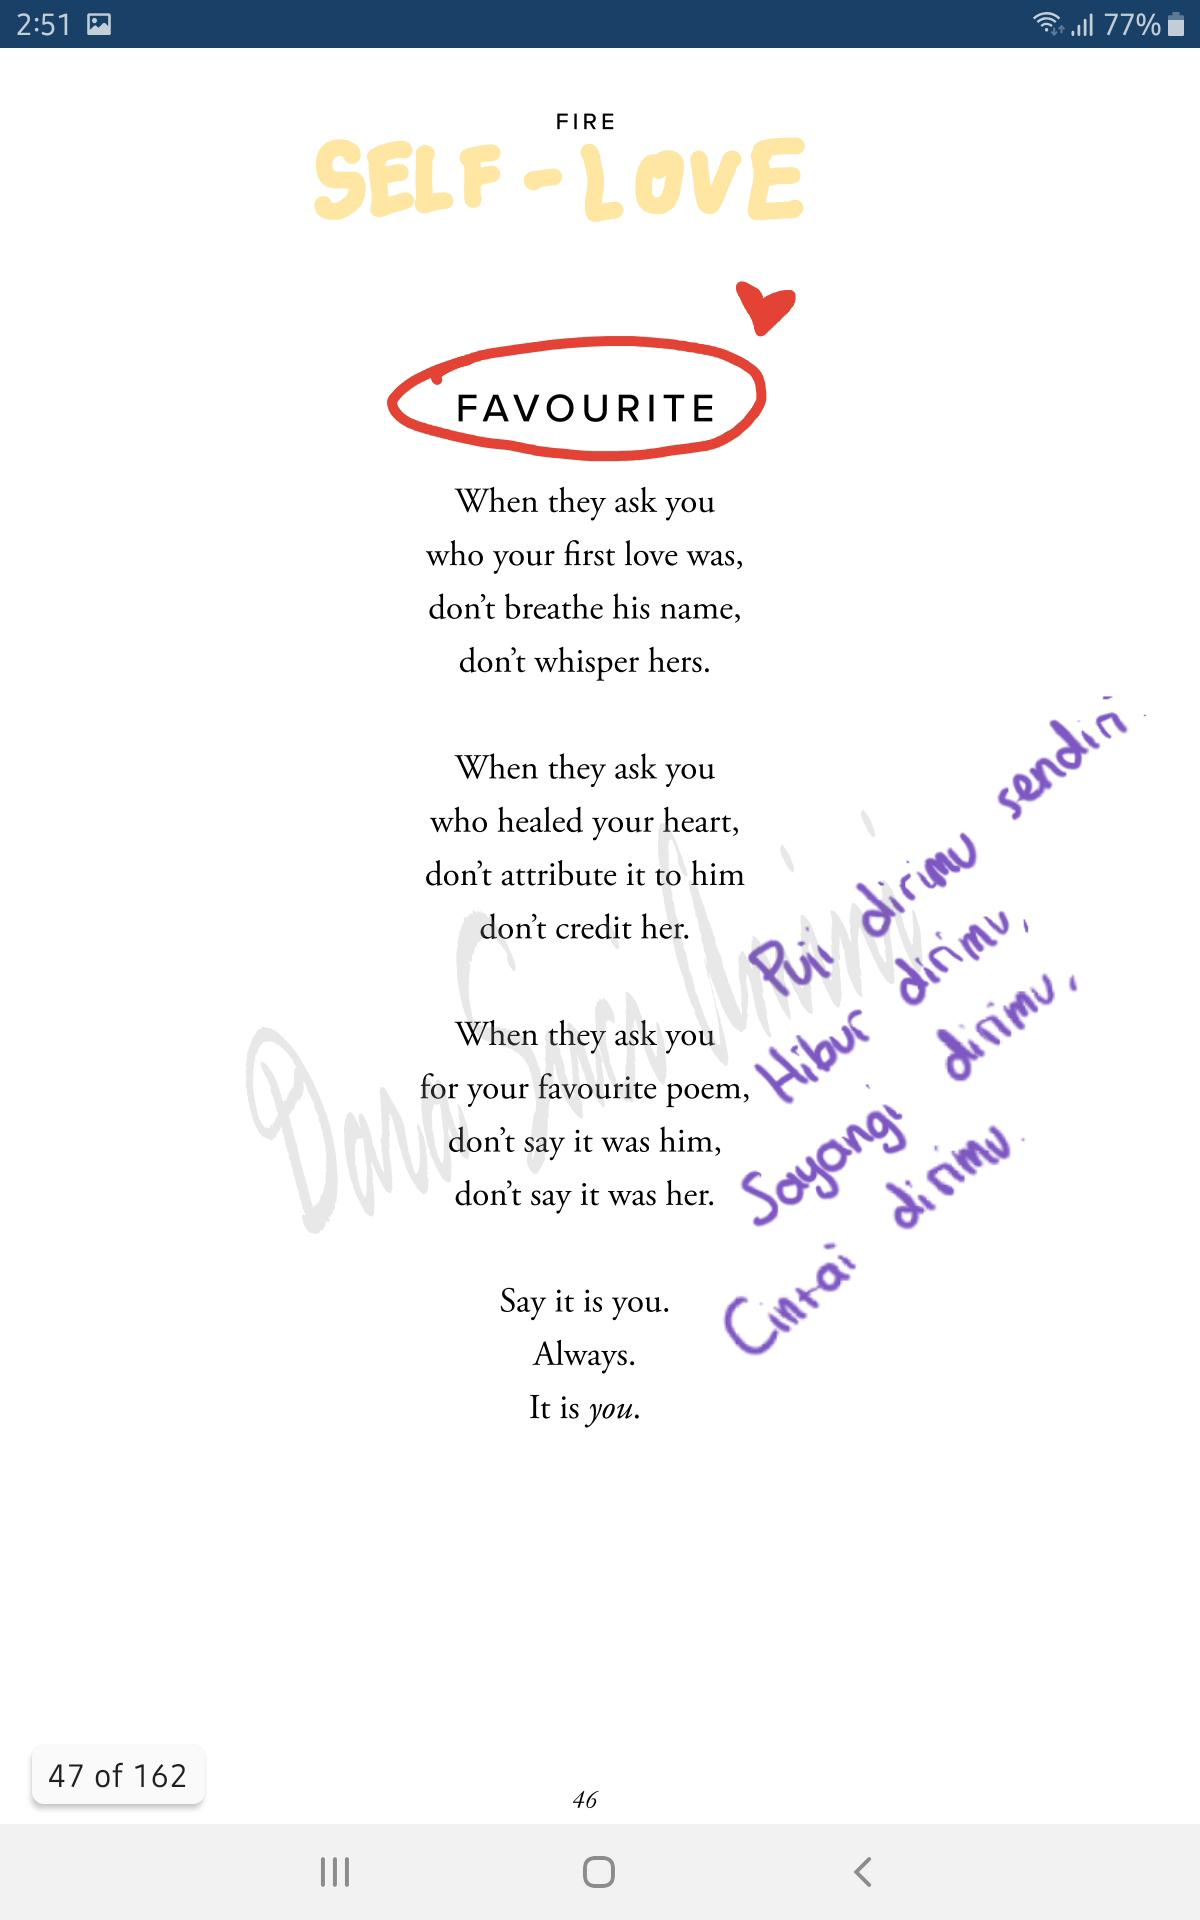 2:51
77%
FIRE
SELF-LOVE
FAVOURITE
When they ask you
who your first love was,
don’t breathe his name,
don’t whisper hers.
When they ask you
who healed your heart,
don’t attribute it to him
don’t credit her.
When they ask you
for your favourite poem,
don’t say it was him,
don’t say it was her.
Say it is you.
Always.
It is you.
Puji dirimu sendiri
Hibur dirimu,
Sayangi dirimu,
Cintai dirimu
Dara
47 of 162
46